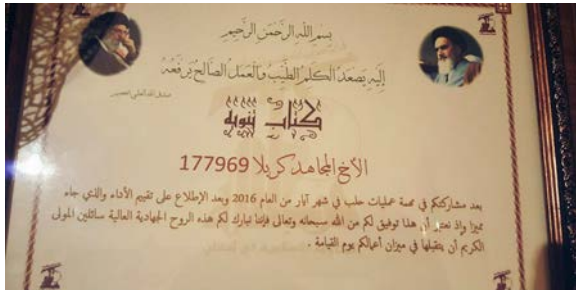 بسم الله الرحمن الرحيم
إليه يصعد الكلم الطيب والعمل الصالح يرفعه
صدق الله العلي العظيم
كتاب تنويه
الأخ المجاهد كربلا 177969
بعد مشاركتكم في مهمة عمليات حلب في شهر آيار من العام 2016 وبعد الإطلاع على تقييم الأداء والذي جاء
مميزا وإذ نعتبر أن هذا توفيق لكم من الله سبحانه وتعالى فإننا نبارك لكم هذه الروح الجهادية العالية سائلين المولى
الكريم أن يتقبلها في ميزان أعمالكم يوم القيامة .